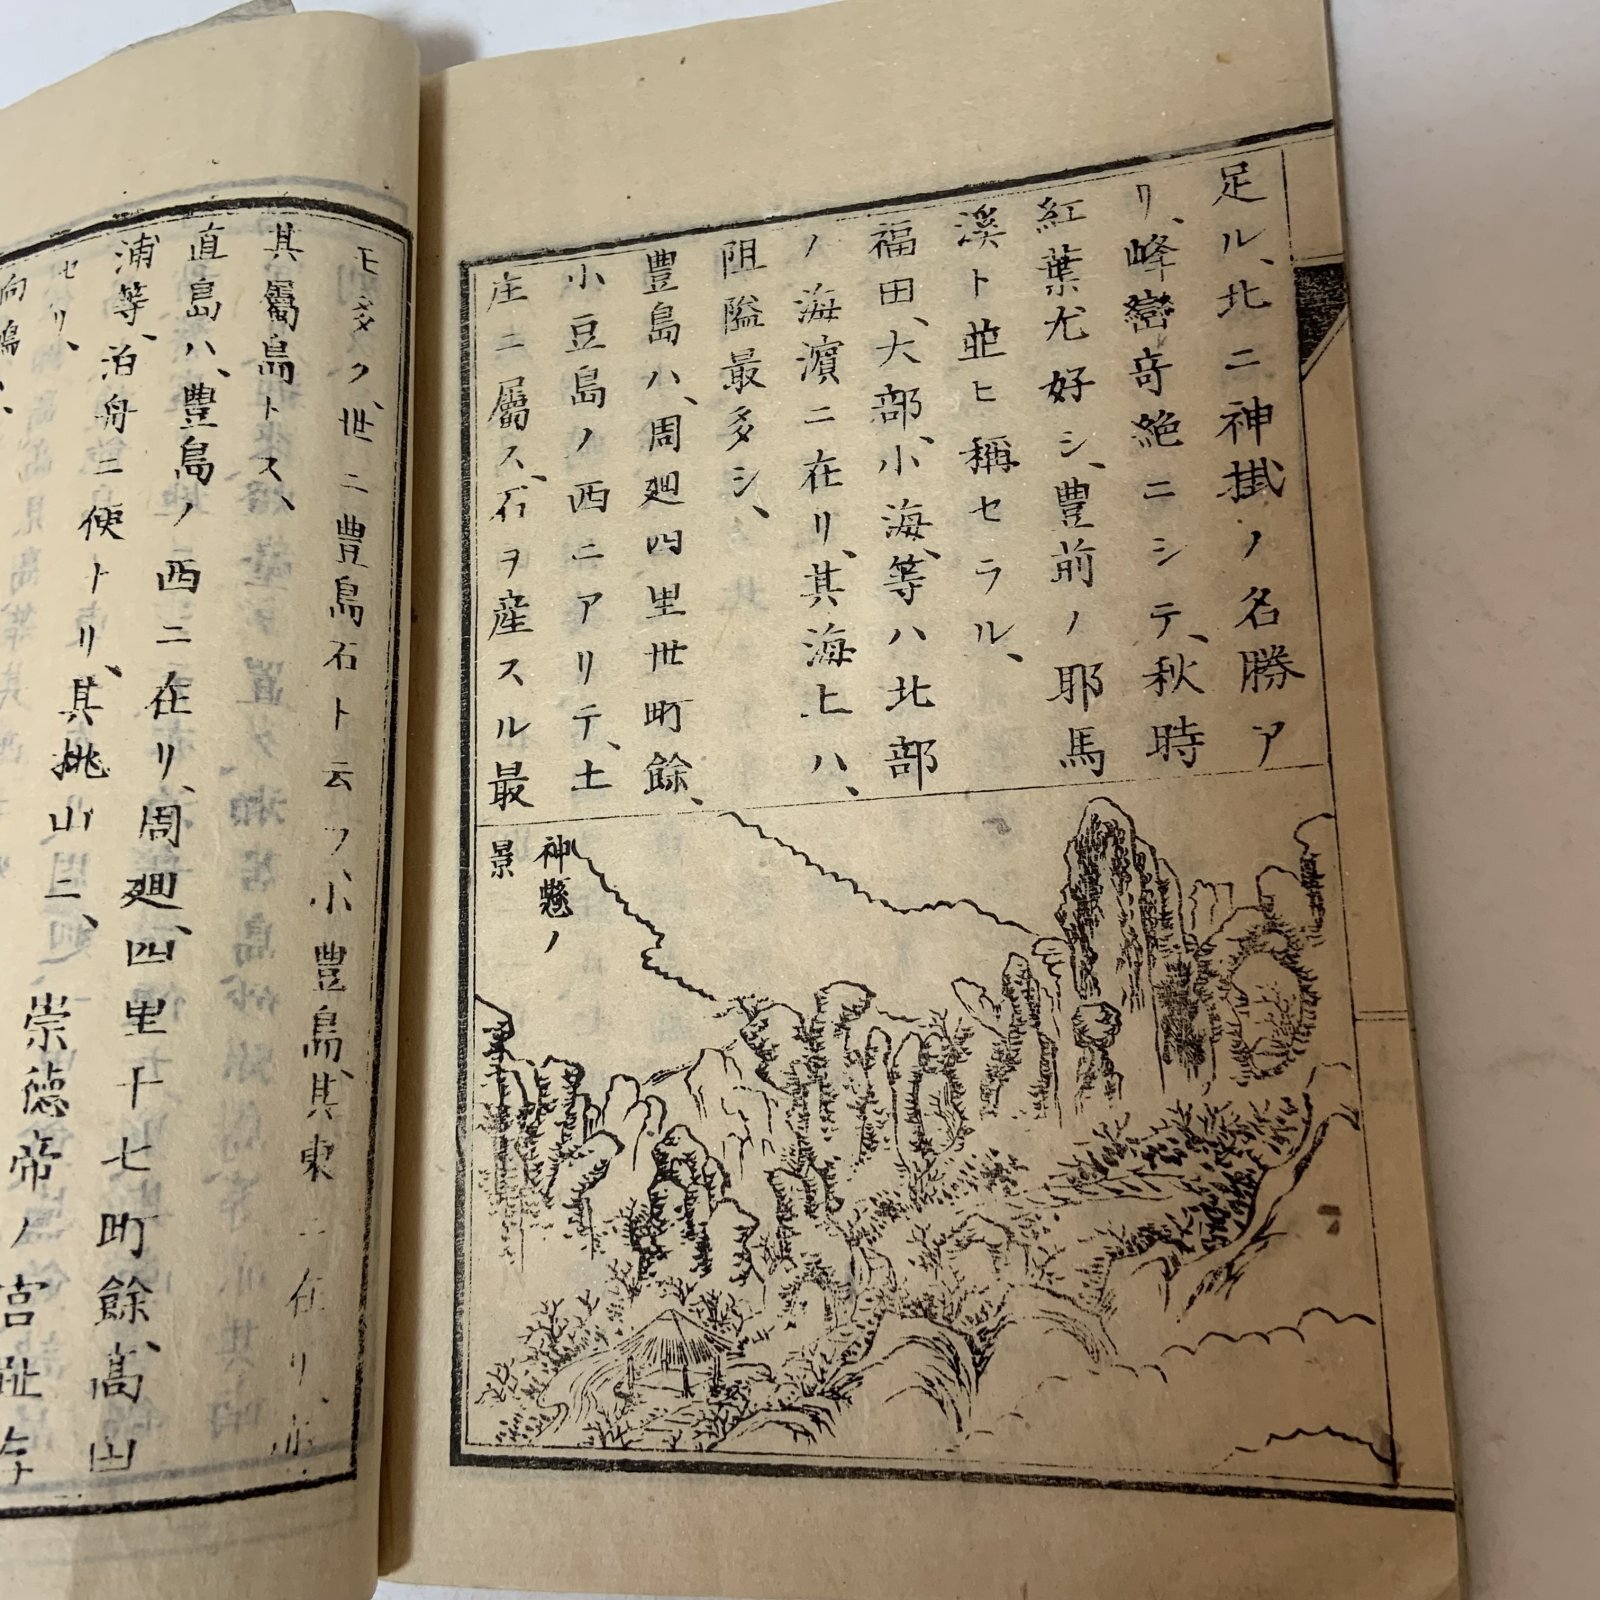 足ル、北ニ神掛ノ名勝ア
リ、峰巒奇絶ニシテ、秋時
紅葉尤好シ、豊前ノ耶馬
溪ト並ヒ稱セラル、
福田、大部、小海、等ハ北部
ノ海濱ニ在リ、其海上ハ、
阻隘最多シ、
豊島ハ、周廻四里丗町餘、
小豆島ノ西ニアリテ、土
庄ニ屬ス、石ヲ産スル最
神懸ノ
景
モ多ク、世ニ豊島石ト云フ、小豊島、其東ニ在リ、
其屬島トス、
直島ハ、豊島ノ西ニ在リ、周廻、四里十七町餘、高田
浦等、泊舟ニ便トリ、其
セリ、崇德帝ノ宮趾存